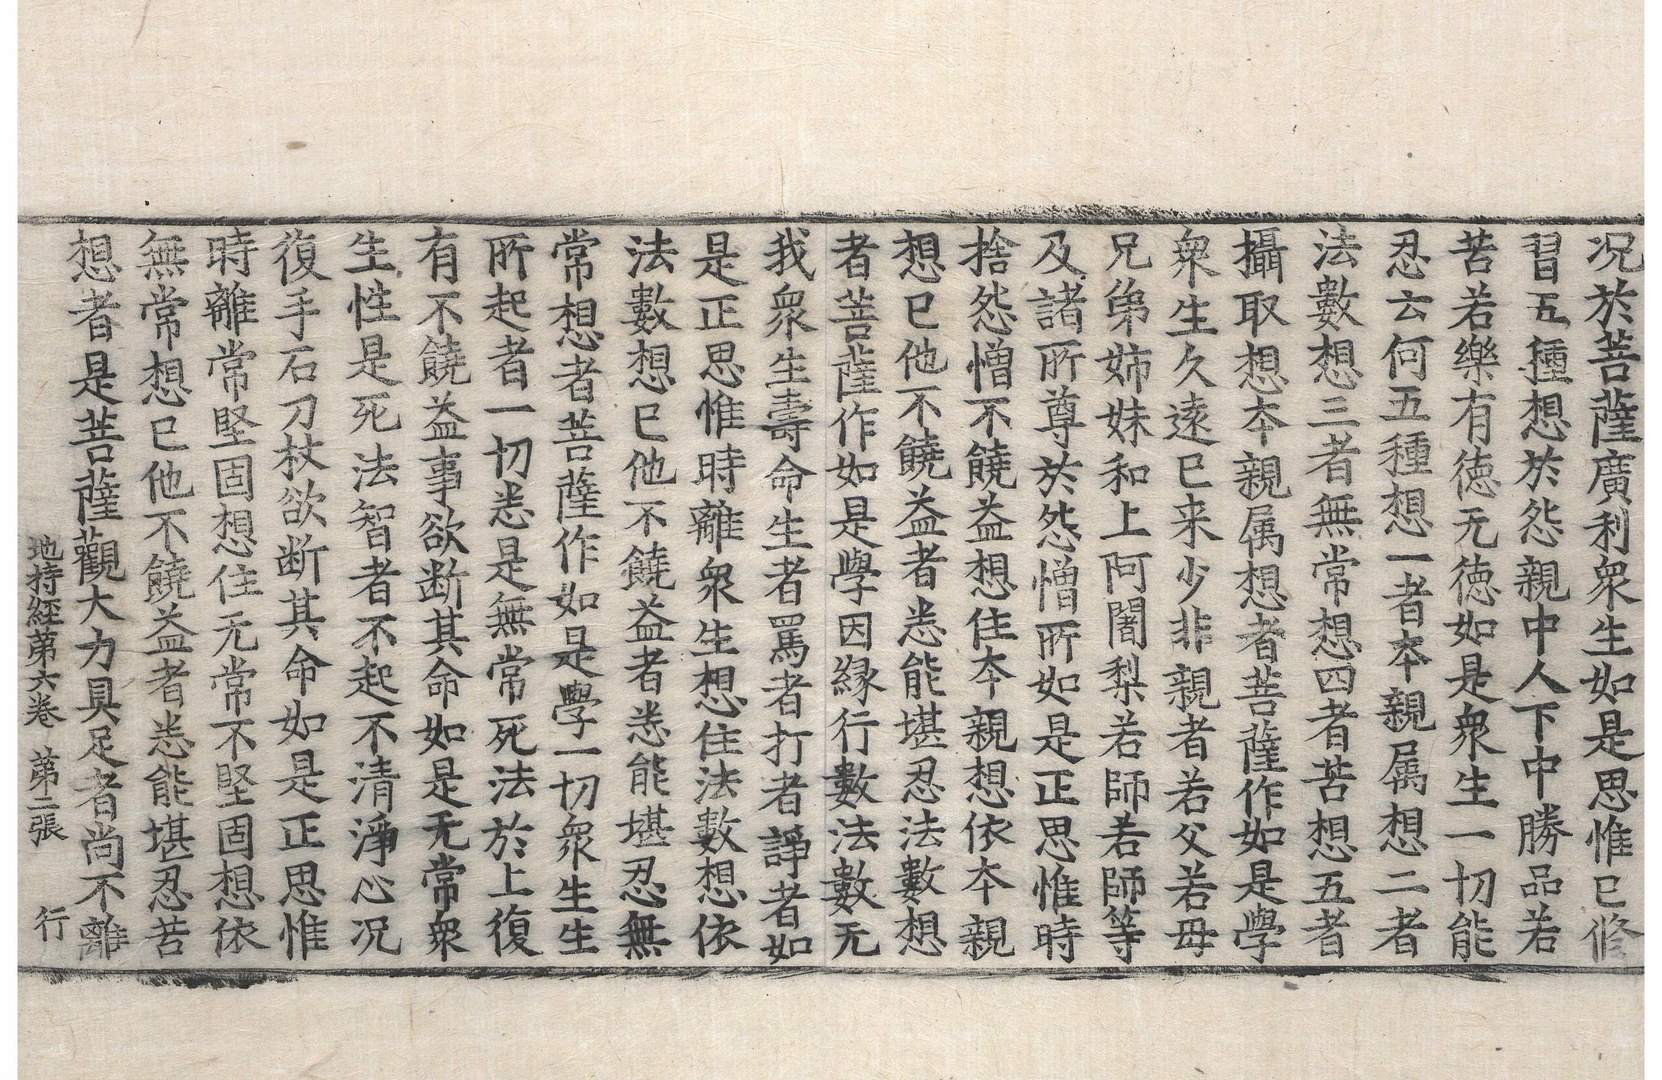 况於菩薩廣利衆生如是思惟已修
習五種想於怨親中人下中勝品若
苦若樂有德无德如是衆生一切能
忍云何五種想一者本親属想二者
法數想三者無常想四者苦想五者
攝取想本親属想者菩薩作如是學
衆生久遠已来少非親者若父若母
兄弟姉妹和上阿闍梨若師若師等
及諸所尊於怨憎所如是正思惟時
捨怨憎不饒益想住本親想依本親
想已他不饒益者悉能堪忍法數想
者菩薩作如是學因縁行數法數无
我衆生壽命生者罵者打者諍者如
是正思惟時離衆生想住法數想依
法數想已他不饒益者悉能堪忍無
常想者菩薩作如是學一切衆生生
所起者一切悉是無常死法於上復
有不饒益事欲断其命如是无常衆
生性是死法智者不起不清淨心况
復手石刀杖欲断其命如是正思惟
時離常堅固想住无常不堅固想依
無常想已他不饒益者悉能堪忍苦
想者是菩薩觀大力具足者尚不離
地持經第六卷 第二張 行